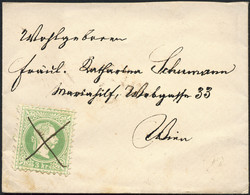 Wohlgeboren
Fräul. Katharina Schumann
Mariahilf, Webgasse 33
Wien